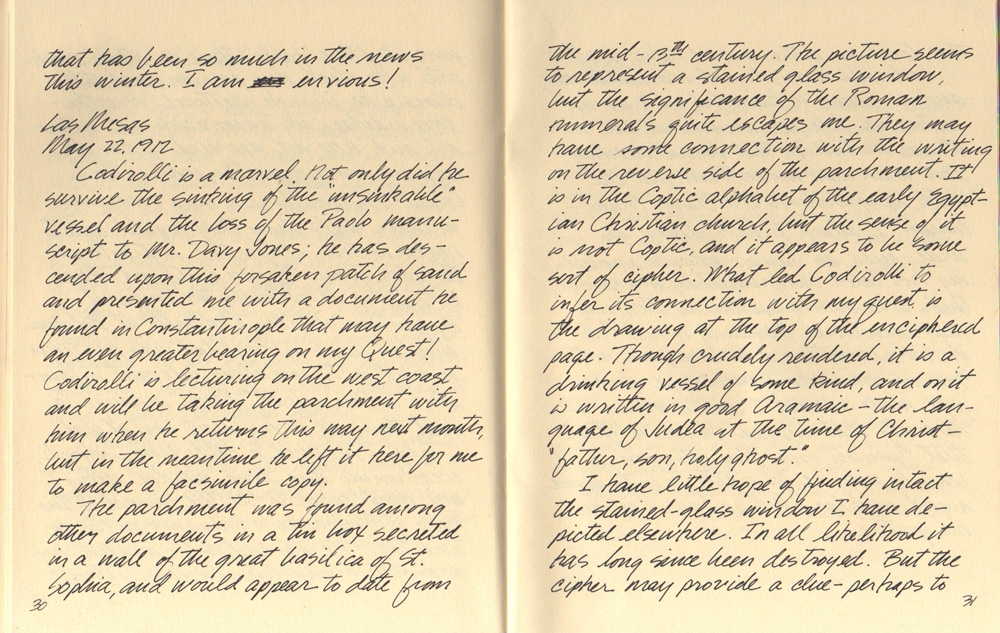 that has been so much in the news
this winter. I am envious!
Las Mesas
May 22, 1912
Codirolli is a marvel. Not only did he
survive the sinking of the "unsinkable"
vessel and the loss of the Paolo manu-
script to Mr. Davy Jones; he has des-
cended upon this forsaken patch of sand
and presented me with a document he
found in Constantinople that may have
an even greater bearing on my Quest!
Codirolli is lecturing on the west coast
and will be taking the parchment with
him when he returns this way next month,
but in the meantime he left it here for me
to make a facsimile copy.
The parchment was found among
other documents in a tin box secreted
in a wall of the great basilica of St.
Sophia, and would appear to date from
30
the mid-13th century. The picture seems
to represent a stained glass window,
but the significance of the Roman
numerals quite escapes me. They may
have some connection with the writing
on the reverse side of the parchment. It
is in the Coptic alphabet of the early Egypt-
ian Christian church, but the sense of it
is not Coptic, and it appears to be some
sort of cipher. What led Codirolli to
infer its connection with my quest is
the drawing at the top of the enciphered
page. Though crudely rendered, it is a
drinking vessel of some kind, and on it
is written in good Aramaic - the lan-
guage of Judea at the time of Christ -
"father, son, holy ghost."
I have little hope of finding intact
the stained-glass window I have de-
picted elsewhere. In all likelihood it
has long since been destroyed. But the
cipher may provide a clue - perhaps to
31